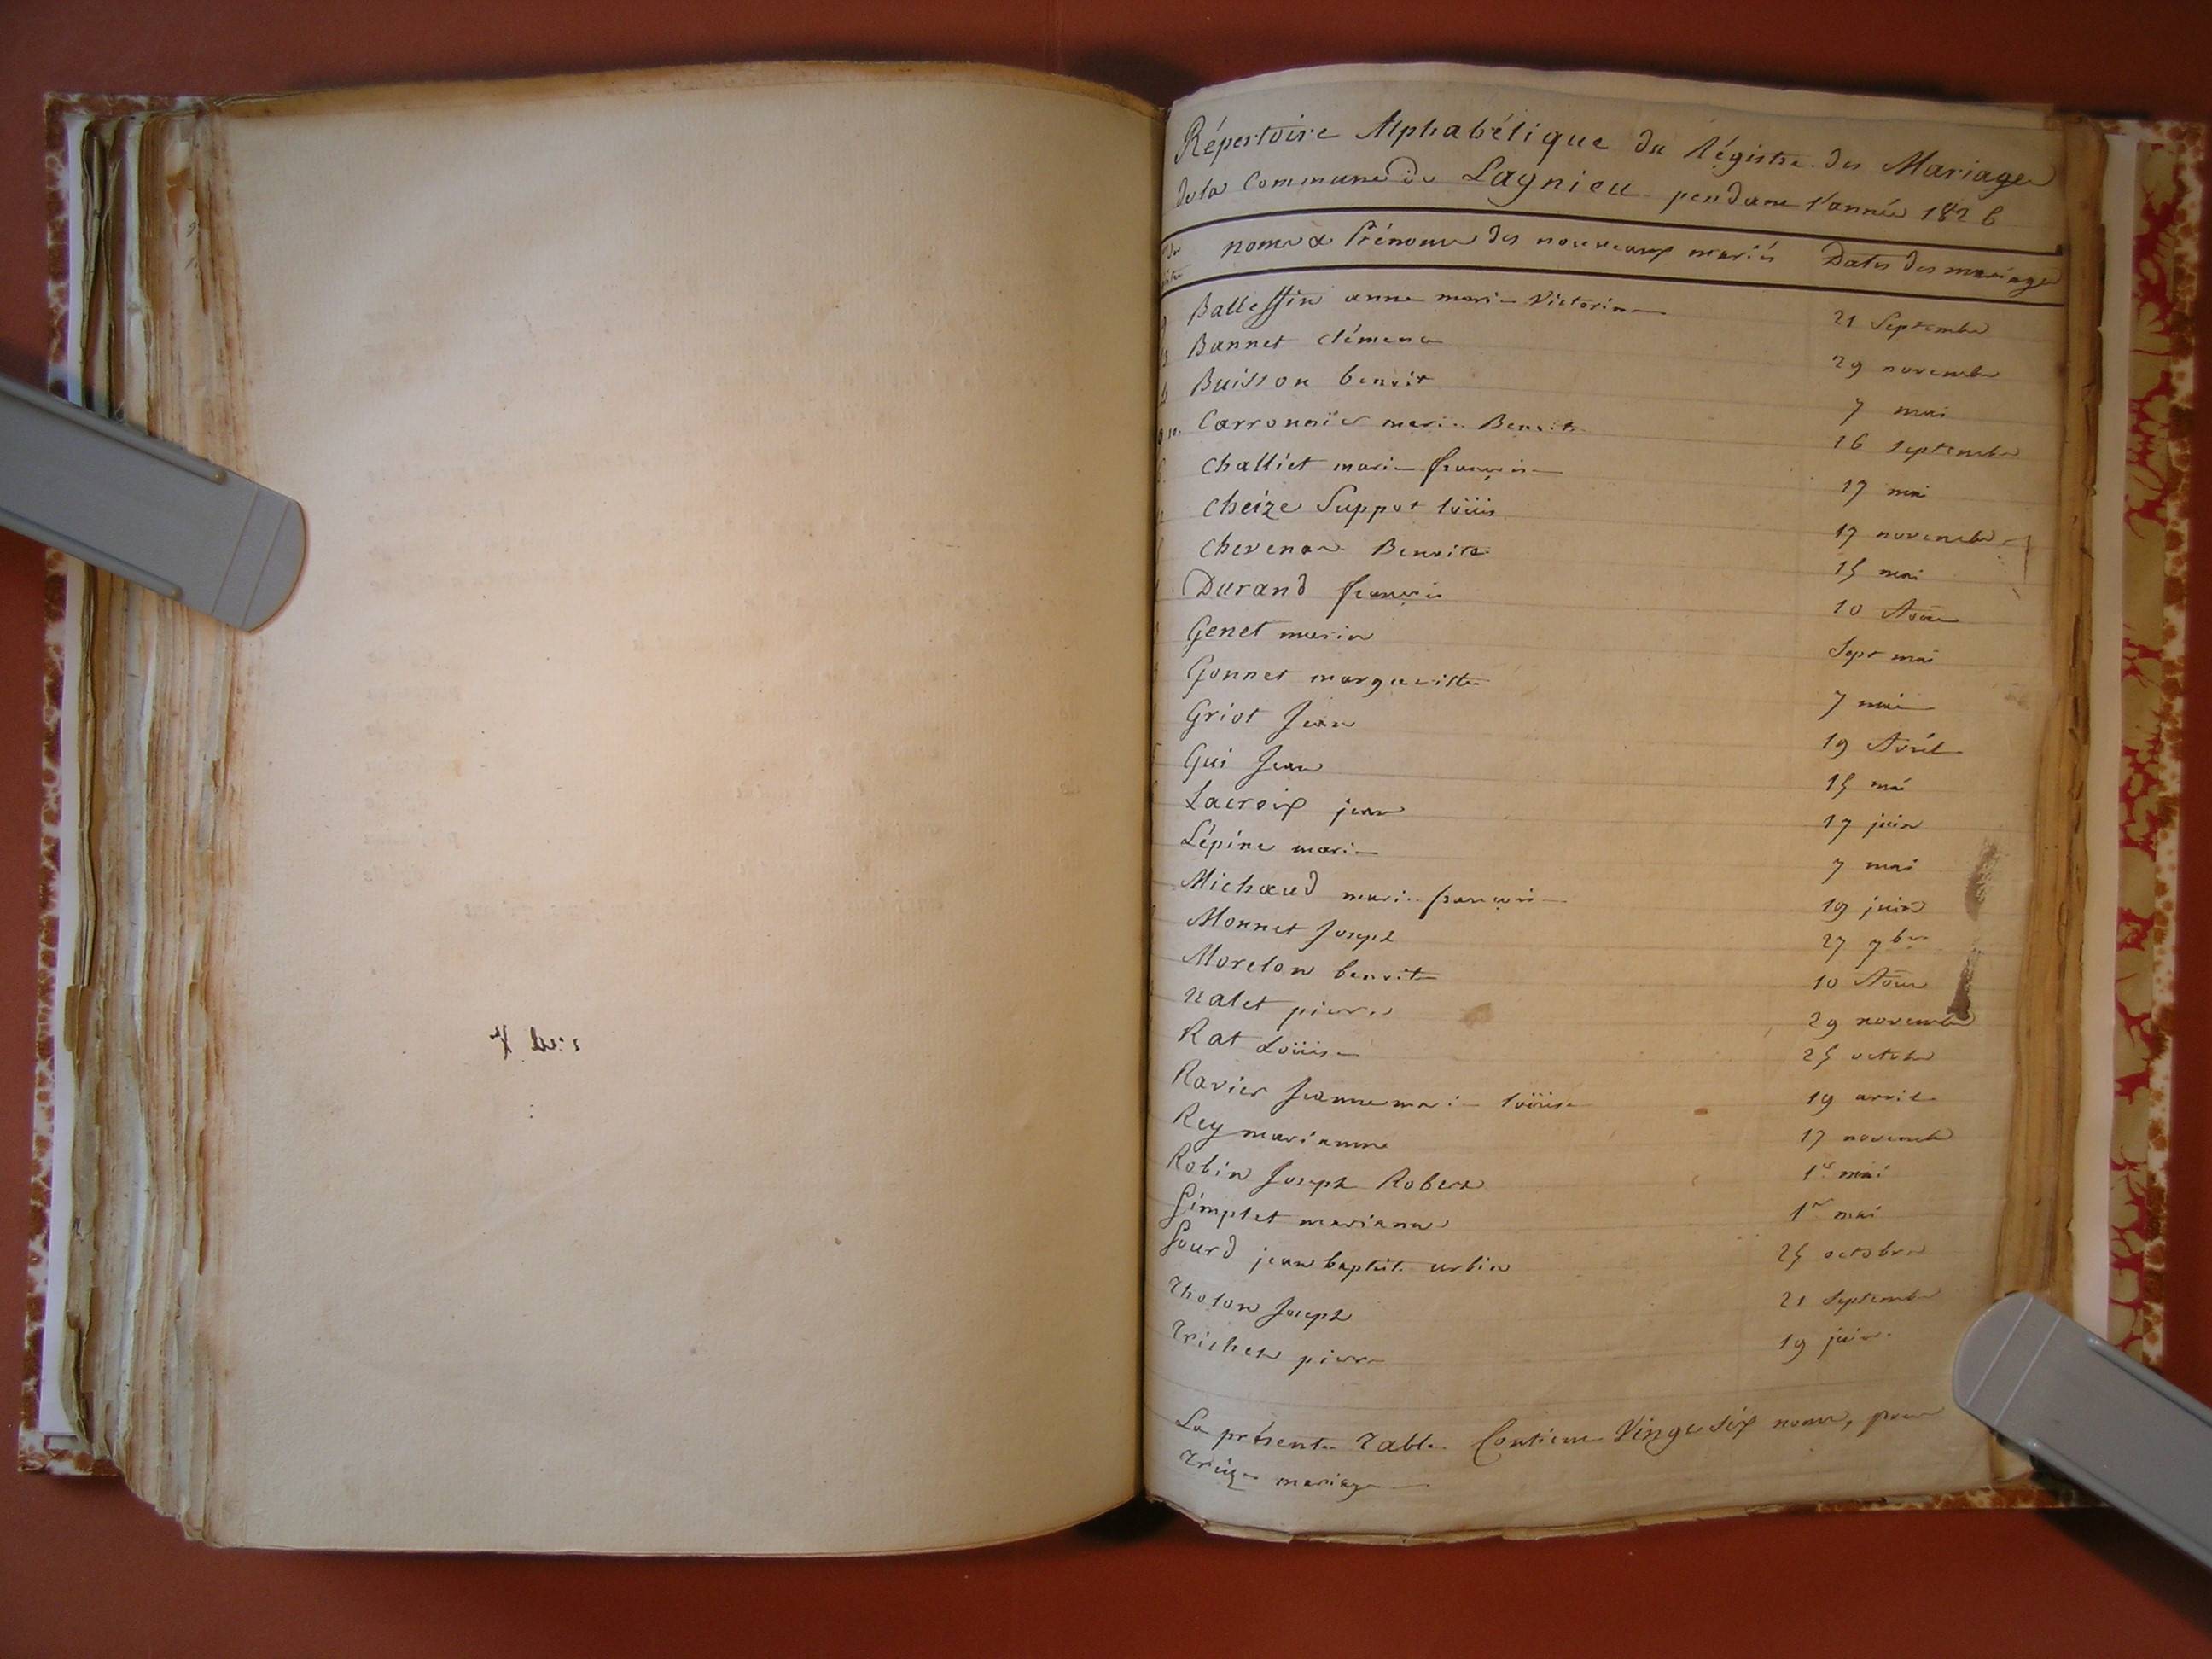 Répertoire Alphabétique du Régistre des Mariages
de la Commune de Lagnieu pendant l'année 1826
noms & Prénoms des nouveaux mariés Dates des mariages
Ballessin anne marie Victorine 21 Septembre
Bannet clémence 29 novembre
Buisson benoit 7 mai
Carronnier marie Benoite 26 septembre
Challiet marie françoise 17 mai
Cheize Suppot loüis 17 novembre
Chevenor Benoite 15 mai
Durand françois 10 Aout
Genet marie Sept mai
Gonnet margueritte 7 mai
Griot Jean 19 Avril
Gui Jean 15 mai
Lacroix jean 17 juin
Lépine marie 7 mai
Michaud marie françoise 19 juin
Monnet Joseph 27 7bre
Morelon benoite 10 Aout
nalet pierre 29 novembre
Rat Loüise 25 octobre
Ravier Jeanne marie loüise 19 avril
Rey marianne 17 novembre
Robin Joseph Robert 1er mai
Simplet marianne 1er mai
Sourd jean baptiste urbin 25 octobre
Tholon Joseph 21 Septembre
Trichet pierre 19 juin
La présente Table Contient Vingt Six noms, pour
Treize mariages